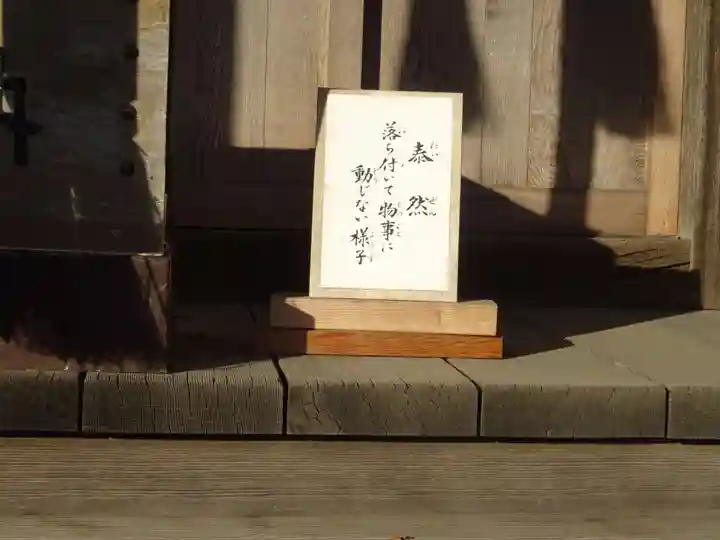 泰然
落ち付いて物事に
動じない様子